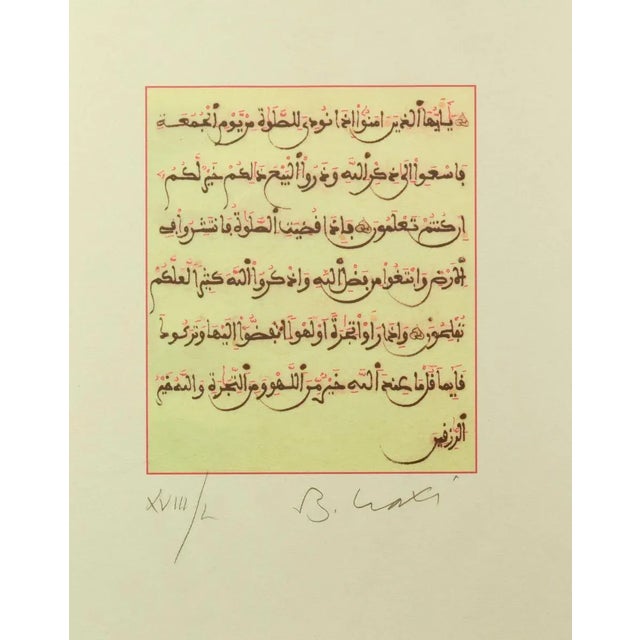 يَٰأَيُّهَا ٱلذِينَ ءَامَنُوٓا۟ إِذَا نُودِىَ لِلصَّلَوٰةِ مِنْ يَّوْمِ ٱلْجُمُعَةِ
فَاسْعَوِا۟ اِلَىٰ ذِكْرِ ٱللَّهِ وَذَرُوا۟ ٱلْبَيْعَ ذَٰلِكُمْ خَيْرٌ لَّكُمُۥٓ
إِن كُنتُمْ تَعْلَمُونَ فَإِذَا قُضِيَتِ ٱلصَّلَوٰةُ فَانتَشِرُوا۟ فِى
ٱلَارْضِ وَابْتَغُوا۟ مِن فَضْلِ ٱللَّهِ وَاذْكُرُوا۟ ٱللَّهَ كَثِيراً لَّعَلَّكُمْ
تُفْلِحُونَ وَإِذَا رَأَوْا۟ تِجَٰرَةً اَوْ لَهْواً ٱنفَضُّوٓا۟ إِلَيْهَا وَتَرَكُوكَ
قَآئِماً قُلْ مَا عِندَ ٱللَّهِ خَيْرٌ مِّنَ ٱللَّهْوِ وَمِنَ ٱلتِّجَٰرَةِ وَاللَّهُ خَيْرُ
ٱلرَّٰزِقِينَ
XVIII/L